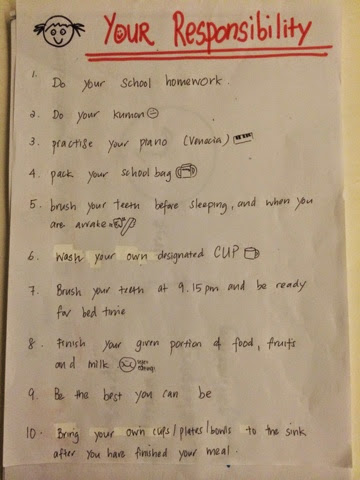 Your Responsibility
1. Do your school homework.
2. Do your kumon
3. practise your piano (Venecia)
4. pack your school bag
5. brush your teeth before sleeping, and when you
are awake
6. Wash your own designated CUP
7. Brush your teeth at 9.15 pm and be ready
for bed time
8. Finish your given portion of food, fruits
and milk
9. Be the best you can be
10. Bring your own cups/plates/bowls to the sink
after you have finished your meal.